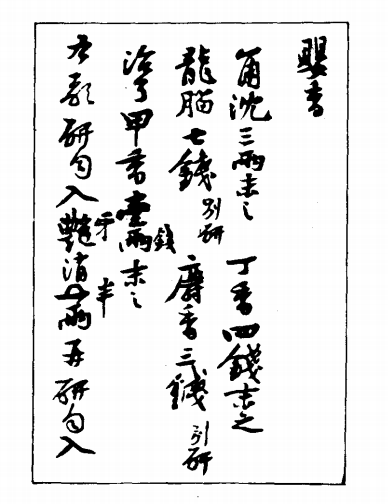 嬰香
角沈三兩末之 丁香四錢末之
龍腦七錢別研 麝香三錢別研
治了甲香壹兩錢末之
右都研勻入艷牙消一兩半再研勻入